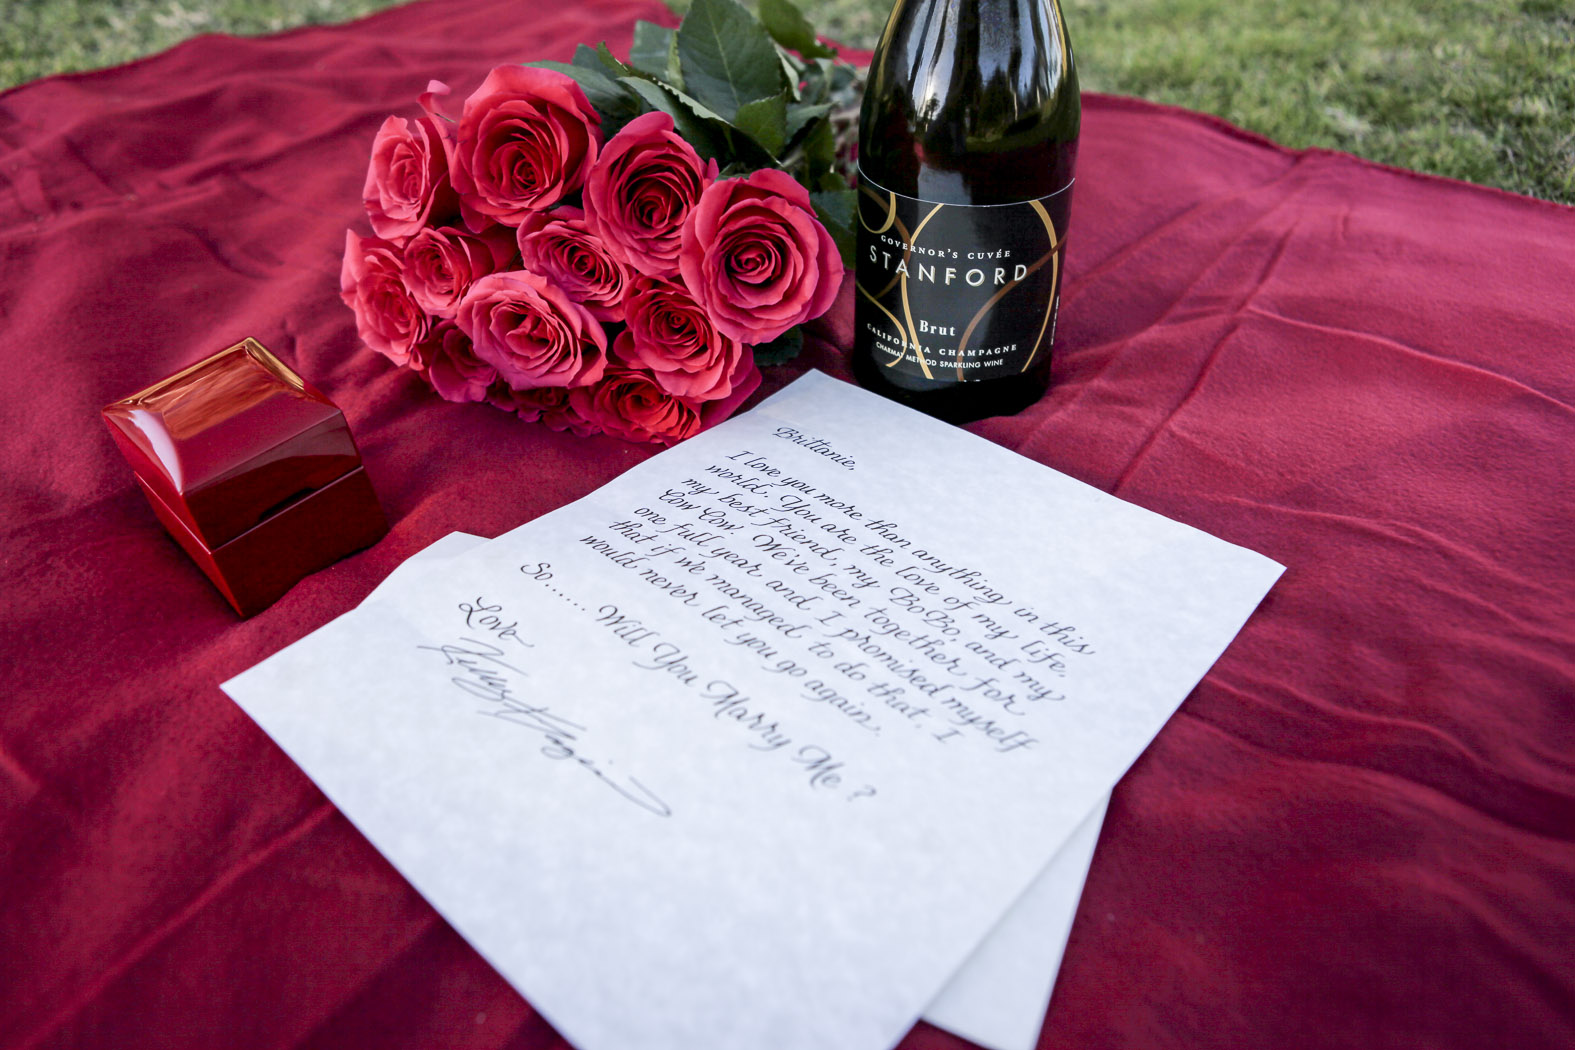 GOVERNOR'S CUVÉE
STANFORD
Brut
CALIFORNIA CHAMPAGNE
CHARMAT METHOD SPARKLING WINE
Brittanie,
I love you more than anything in this
world. You are the love of my life,
my best friend, my BoBo, and my
Cow Cow. We've been together for
one full year and I promised myself
that if we managed to do that, I
would never let you go again.
So...... Will You Marry Me?
Love